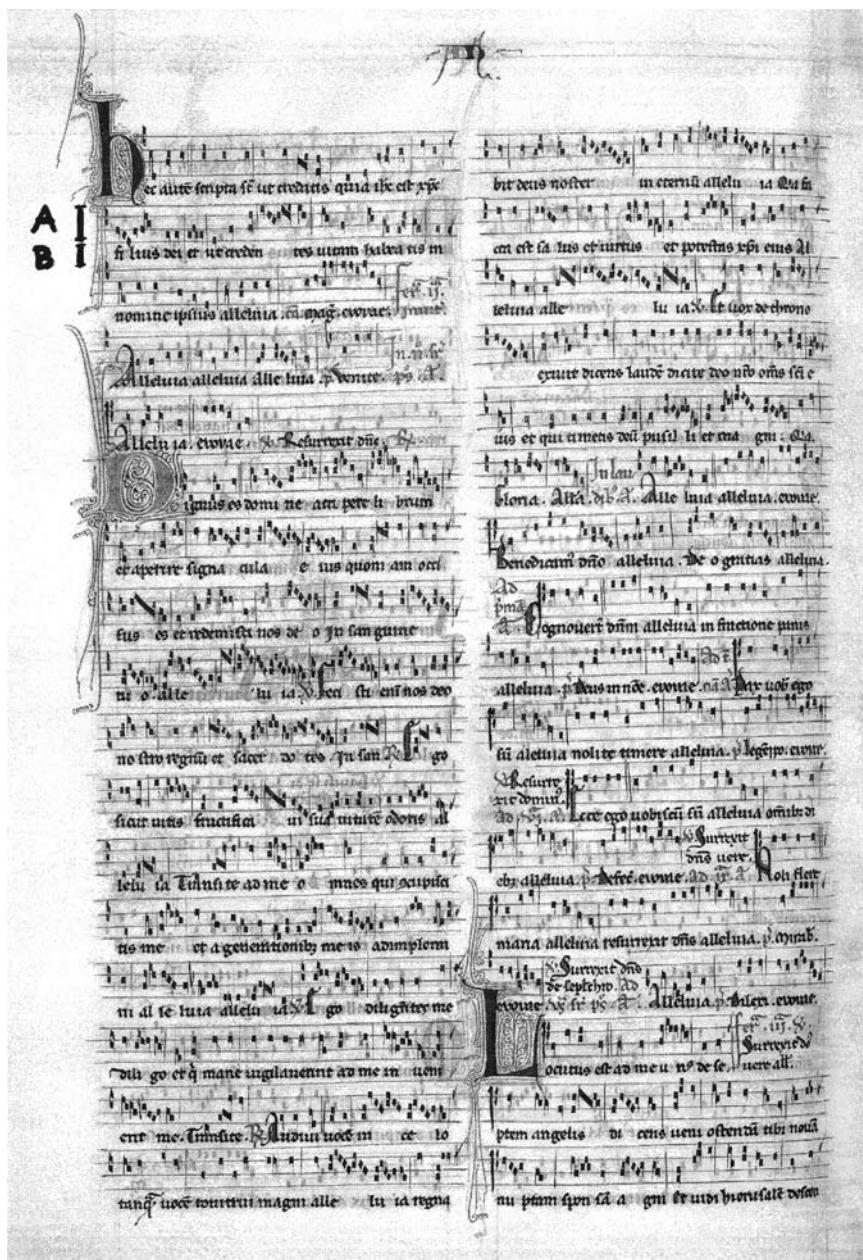 An
hec autē scripta sēt ut credatis quia ihc est xpc
A
B
fi lius dei et ut creden tes uitam habea tis in
nomine ipsius alleluia . euouae .
Alleluia alleluia alle luia . p̄ Venite . ps
Allelu ia . euouae . Resurrexit dn̄s .
Dignus es domi ne acci pere li brum
et aperire signa cula e ius quoni am occi
sus es et redemisti nos de o In san guine
tu o alle lu ia . V̄ feci sti eni nos deo
no stro regnū et sacer do tes In san Ego
sicut uitis fructifica ui sua uitatē odoris al
lelu ia Transi te ad me o mnes qui
tis me et a generationibz me is adimplemi
ni al le luia allelu ia V̄ Ego diligētes me
dili go et q̄ mane uigilauerint ad me in ueni
ent me . Transite . Audiui uocē in ce lo
tanq̄ uocē tonitrui magni alle lu ia regna
bit deus noster in eternū allelu ia Qa fa
cta est sa lus et uirtus et potestas xpi eius Al
leluia alle lu ia . V̄ Et uox de throno
exiuit dicens laudē dicite deo nr̄o om̄s sc̄i e
ius et qui timetis deū pusil li et ma gni . Qa .
Gloria . Alla . In lau Alle luia alleluia . euouae .
Benedicam' dn̄o alleluia . De o gratias alleluia .
Ad
Cognouerūt dn̄m alleluia in fractione panis
alleluia . p̄ Deus in noē . euouae . Pax uob ego
sū aleluia nolite timere alleluia . euouae .
V̄ Resurre
xit dominus .
Ecce ego uobiscū sū alleluia om̄ibz di
V̄ Surrexit
dn̄s uere .
ebz alleluia . p̄ Defec . euouae . Noli flere
maria alleluia resurrexit dn̄s alleluia . p̄ Mirab .
V̄ Surrexit dn̄s
de sepulchro . Ad
euouae Alleluia . p̄ Dilexi . euouae .
Surrexit
Locutus est ad me u n' de se uere all .
ptem angelis di cens ueni ostendā tibi nouā
nu ptam spon sā a gni Et uidi hierusalē descen